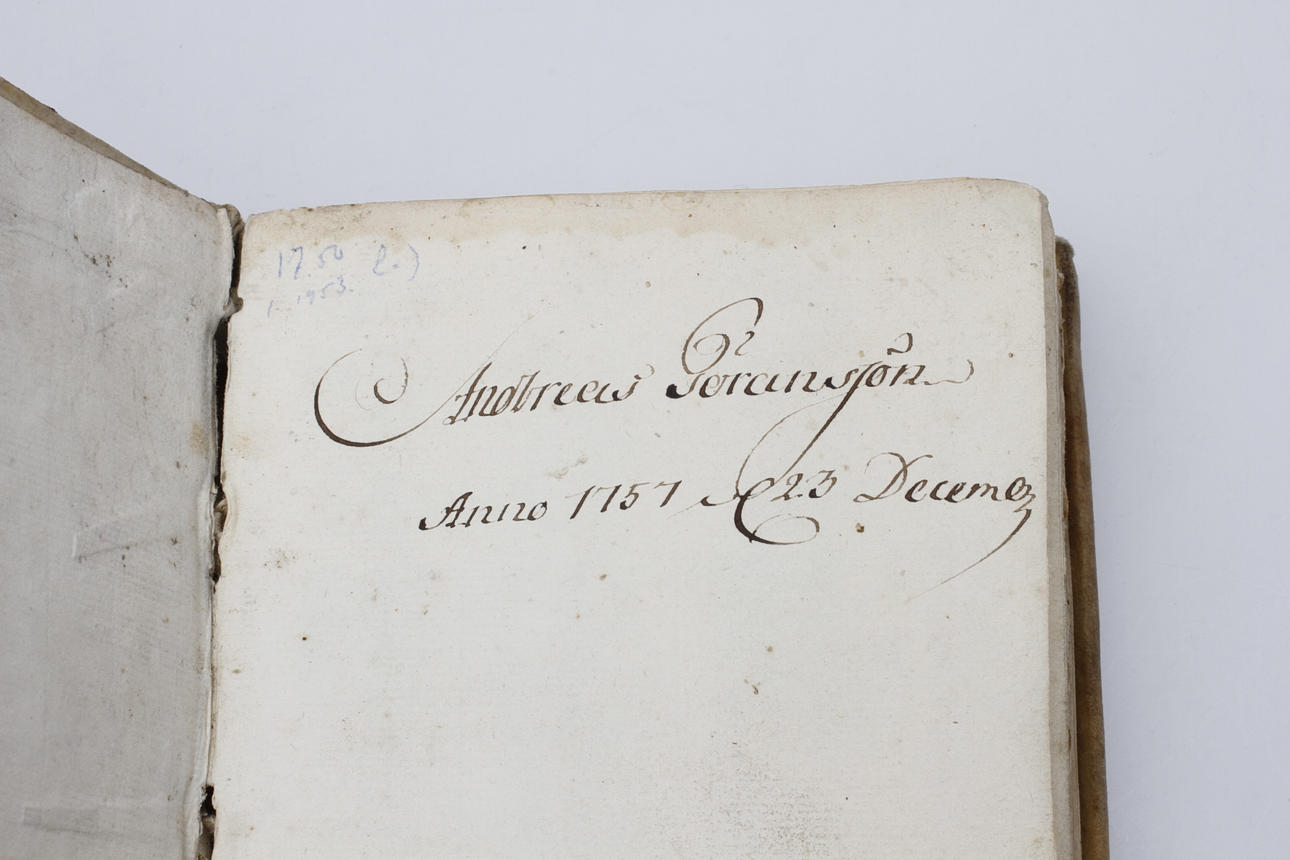 1750 
1953.
Andreas Göransson
Anno 1757 23 Decemb